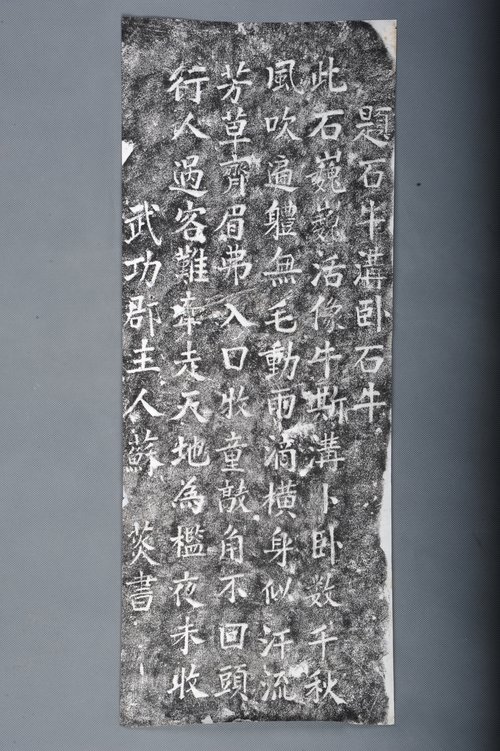 題石牛溝卧石牛
此石巍巍活像牛斯溝卜卧数千秋
風吹遍體無毛動雨滴橫身似汗流
芳草齊眉弗入口牧童敲角不回頭
行人過客難牽走天地為檻夜未收
武功郡主人蘇 荧書